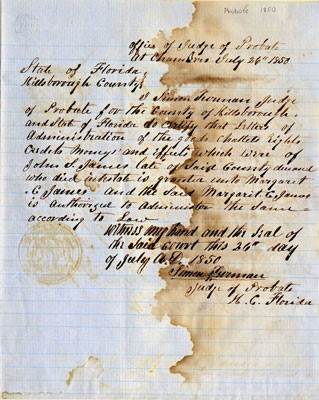 Probate 1850
Office of Judge of Probate
At Chambers July 26th 1850
State of Florida
Hillsborough County
I Simon Turman Judge
of Probate for the County of Hillsborough
and State of Florida do certify that Letters of
Administration of the goods Chattels Rights
Credits Money and Effects which were of
John S. James late of said County deceased
who died intestate is granted unto Margaret
C James and the said Margaret C. James
is Authorized to Administer the Same
according to Law
Witness my hand and the Seal of
the Said Court this 26th day
of July A.D. 1850
Simon Turman
Judge of Probate
H. C. Florida